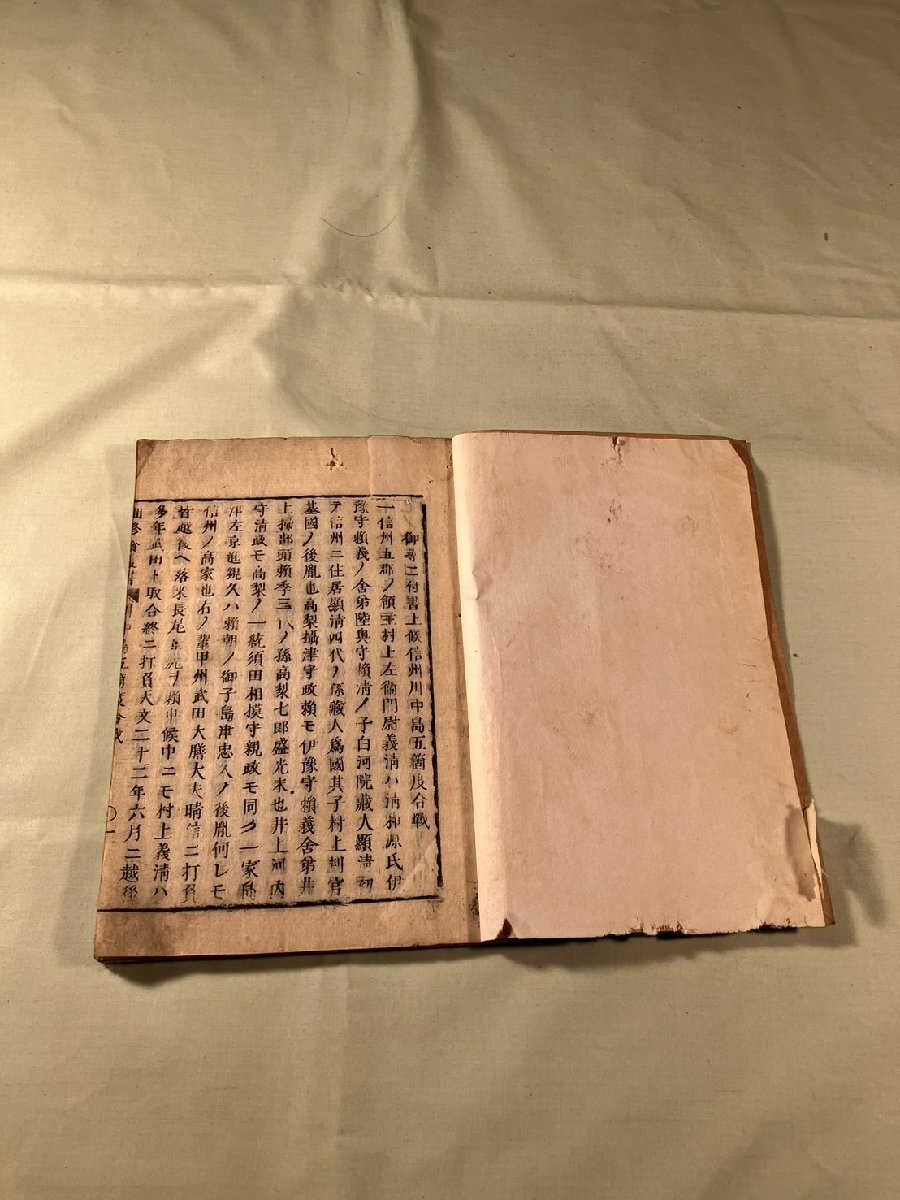 御尋ニ付書上候信州川中島五箇度合戦
一信州五郡ノ領主村上左衛門尉義清ハ清和源氏伊
豫守頼義ノ舍弟陸奥守頼清ノ子白河院蔵人顕清初
テ信州ニ住居顕清四代ノ孫蔵人為國其子村上判官
基國ノ後胤也高梨攝津守政頼モ伊豫守頼義舍弟井
上掃部頭頼季三代ノ孫高梨七郎盛光末也井上河内
守清政モ高梨ノ一統須田相摸守親政モ同ク一家島
津左京進規久ハ頼朝ノ御子島津忠久ノ後胤何レモ
信州ノ高家也右ノ輩甲州武田大膳大夫晴信ニ打負
皆越後ヘ落来長尾 ヲ頼申候中ニモ村上義清ハ
多年武田ト取合終ニ打負天文二十二年六月ニ越後
五箇度合戦
一